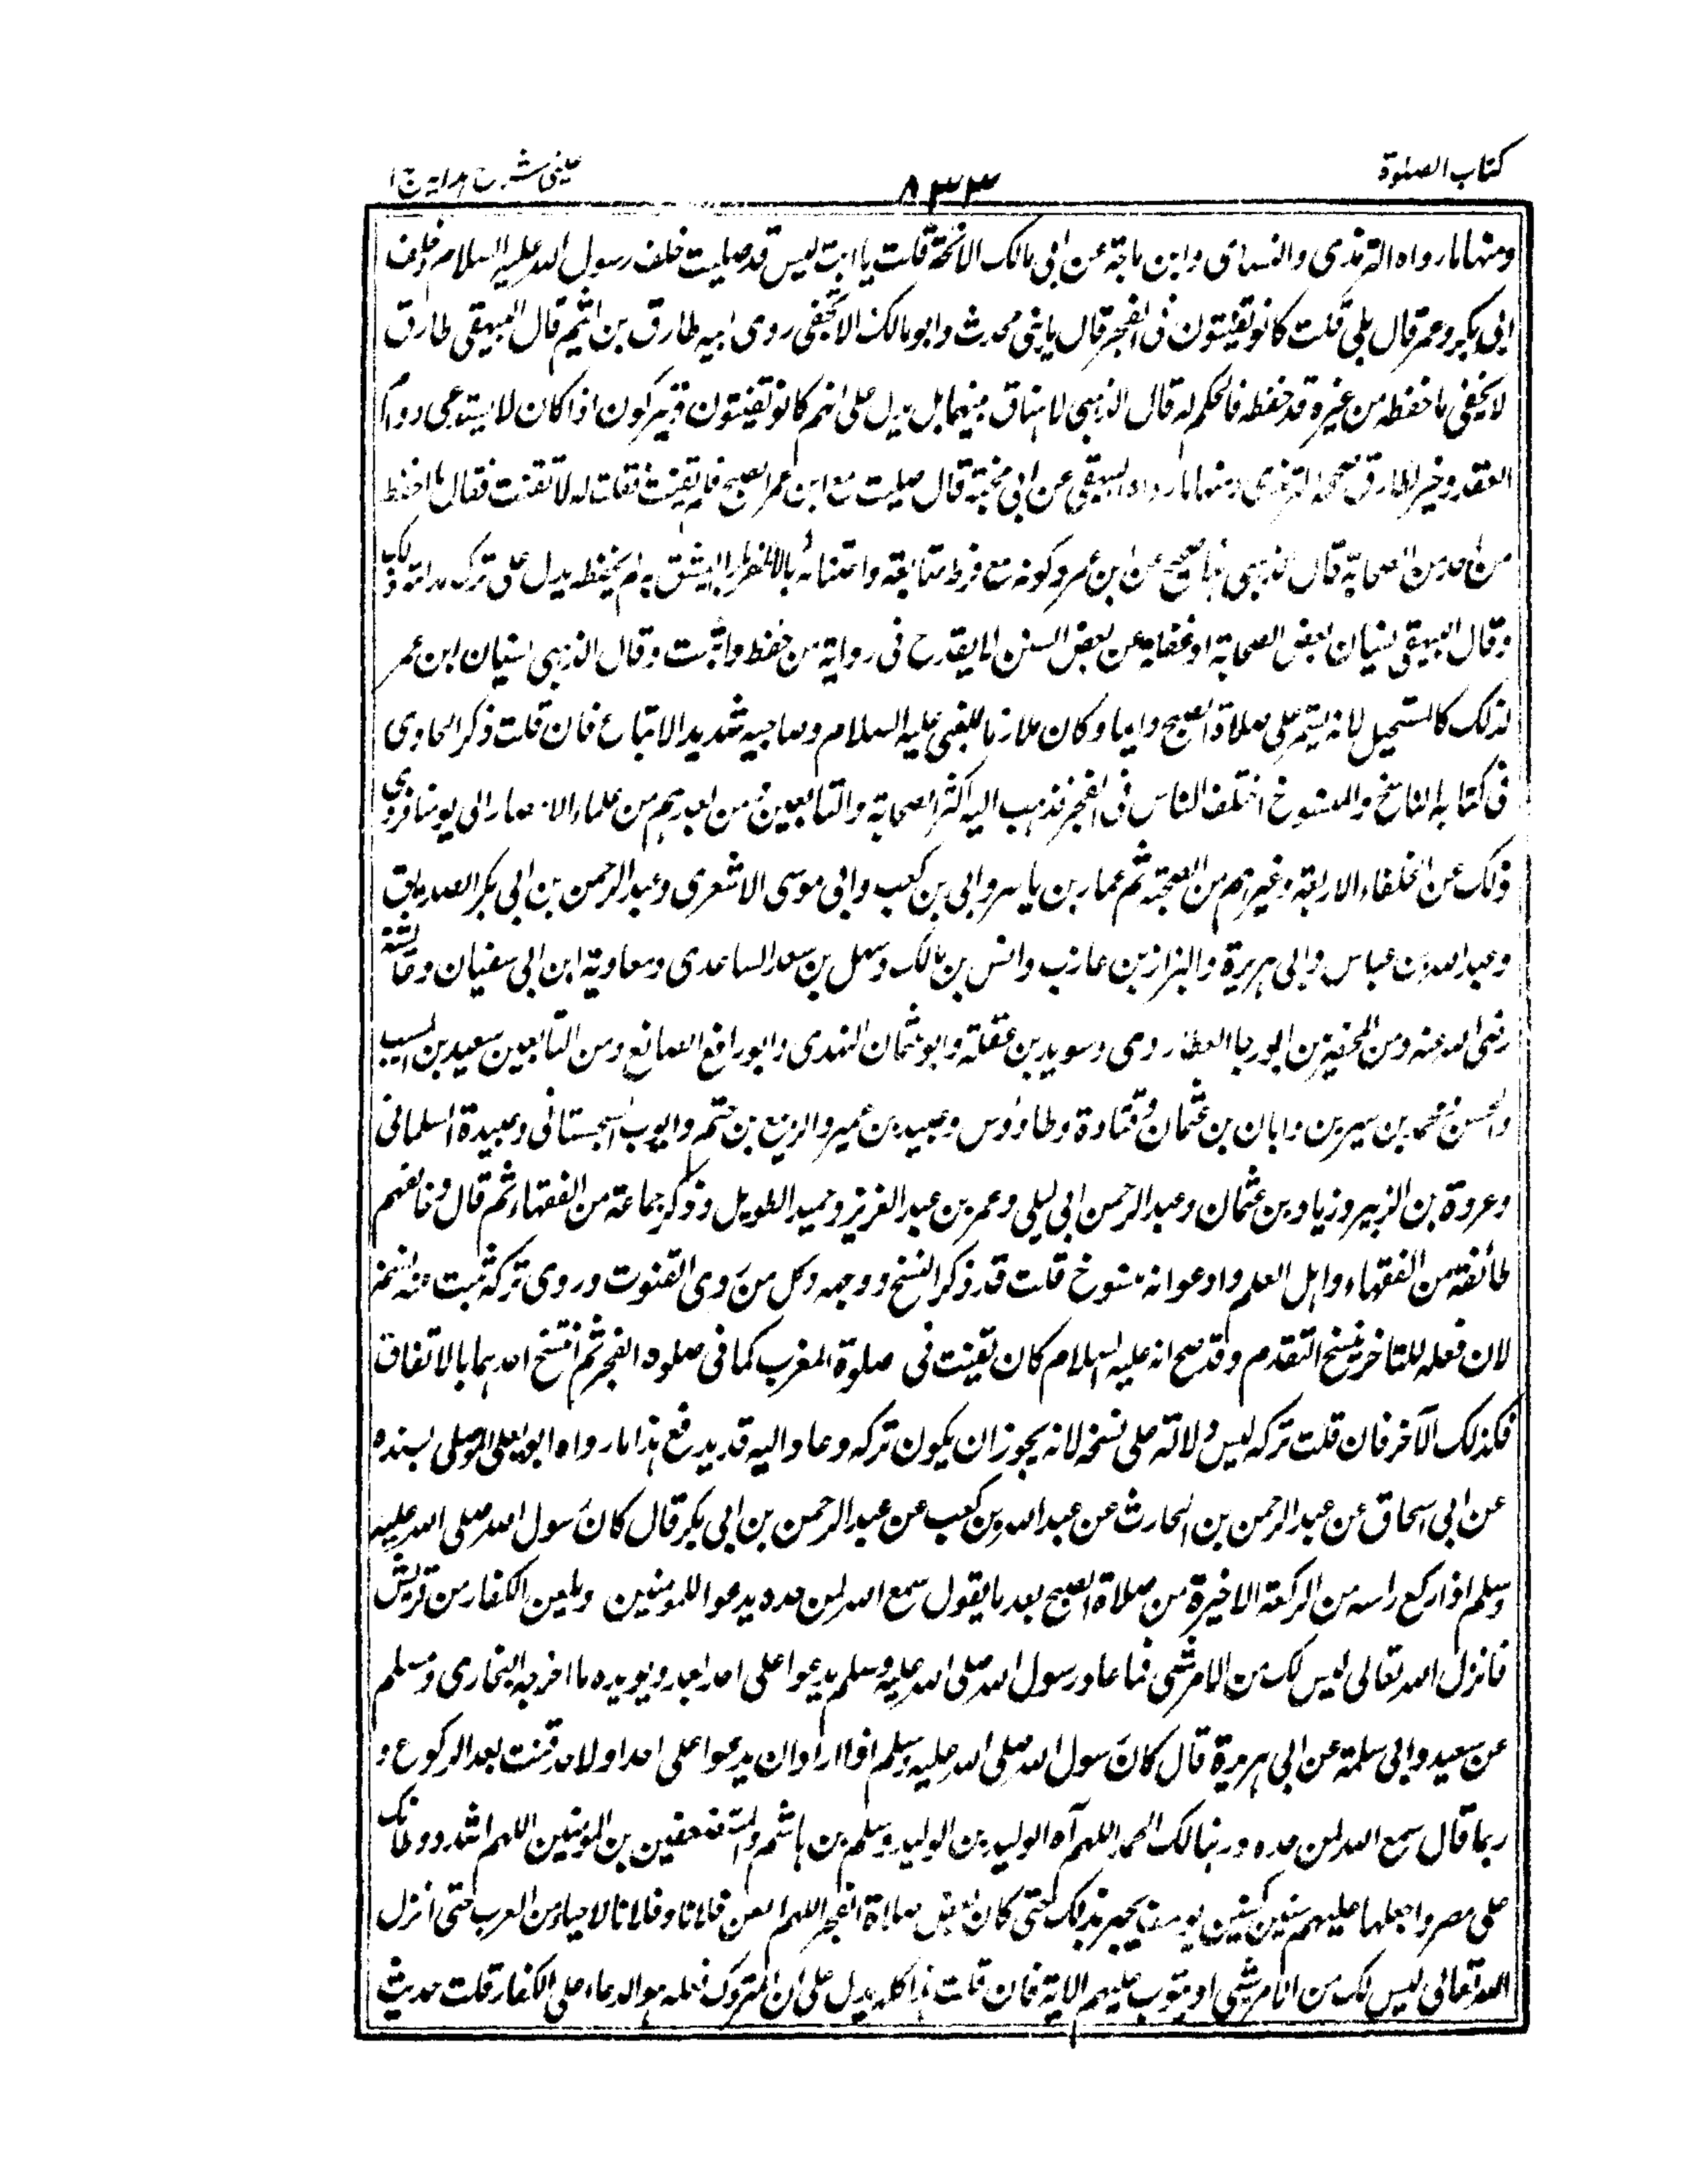 كتاب الصلوة
٨٣٣
عینی شرح هدایه ج ا
ومنها ما رواه الترمذى والنسائى وابن ماجة عن ابى مالك قلت يا ابت ليس قد صليت خلف رسول الله عليه السلام وخلف
ابى بكر وعمر قال بلى قلت كانو تقنتون فى الفجر قال يا بنى محدث وابو مالك روى ابيه طارق بن اشيم قال البيهقى طارق
لا يخفى ما حفظه من غيره قد حفظه فالحكم له قال الذهبى بينهما بل يدل على انهم كانو تقنتون ويتركون اذا كان لا يستوعبى دوام
العقد وخبر طارق صححه الترمذى ومنها ما رواه البيهقى عن ابى قال صليت مع ابن عمر الصبح فلم يقنت فقلت له لا تقنت فقال ما احفظ
من احد من الصحابة قال الذهبى صحيح عن ابن عمر وكونه مع فرط متابعته لم يحفظه يدل على ترك ذلك
وقال البيهقى نسيان بعض الصحابة او غفلته عن بعض السنن لا يقدح فى رواية من حفظ واثبت وقال الذهبى نسيان ابن عمر
لذلك كالمستحيل لانه على صلاة الصبح دايما وكان ملازما للنبى عليه السلام وصاحبيه شديد الاتباع فان قلت ذكر الحاوى
فى كتابه الناسخ والمنسوخ اختلف الناس فى الفجر فذهب اليه اكثر الصحابة والتابعين ومن بعدهم من علماء الامصار الى يومنا فروى
ذلك عن الخلفاء الاربعة وغيرهم من الصحبة ثم عمار بن ياسر وابى بن كعب وابى موسى الاشعرى وعبد الرحمن بن ابى بكر الصديق
وعبد الله بن عباس وابى هريرة والبراز بن عازب وانس بن مالك وسهل بن سعد الساعدى ومعاوية ابن ابى سفيان وعائشة
رضى الله عنه ومن ابو رجا العطاردى وسويد بن عقلة وابو عثمان النهدى وابو رافع الصانع ومن التابعين سعيد بن المسيب
والحسن ومحمد بن سيرين وابان بن عثمان وقتادة وطاؤوس وعبيد بن عمير والربيع بن وايوب السجستانى وعبيدة السلمانى
وعروة بن الزبير وزياد بن عثمان وعبد الرحمن ابى ليلى وعمر بن عبد العزيز وحميد الطويل وذكر جماعة من الفقهاء ثم قال وخالفهم
طائفة من الفقهاء واهل العلم وادعوا انه منسوخ قلت قد ذكر النسخ ووجهه وكل من روى القنوت وروى تركه ثبت عنه
لان فعله للتاخر ينسخ المتقدم وقد صح انه عليه السلام كان تقينت فى صلوة المغرب كما فى صلوة الفجر ثم انتسخ احدهما بالاتفاق
فكذلك الآخر فان قلت تركه ليس دلالة على نسخه لانه يجوز ان يكون تركه وعاد اليه قد يدفع هذا ما رواه ابو يعلى الموصلى بسنده
عن ابى اسحاق عن عبد الرحمن بن الحارث عن عبد الله بن كعب عن عبد الرحمن بن ابى بكر قال كان رسول الله صلى الله عليه
وسلم اذا ركع راسه من الركعة الاخيرة من صلاة الصبح بعد ما يقول سمع الله لمن حمده يدعوا للمؤمنين ويلعن الكفار من قريش
فانزل الله تعالى ليس لك من الامر شئى فما عاد رسول الله صلى الله عليه وسلم يدعوا على احد بعد ويويده ما اخرجه البخارى ومسلم
عن سعيد وابى سلمة عن ابى هريرة قال كان رسول الله صلى الله عليه وسلم اذا اراد ان يدعوا على احد او لاحد قنت بعد الركوع و
ربما قال سمع الله لمن حمده وربنا لك الحمد اللهم الوليد بن الوليد وسلم بن هاشم والمستضعفين بن المومنين اللهم اشدد وطاتك
على مضر واجعلها عليهم سنين كسنين يوسف يجهر بذلك حتى كان يقول صلاة الفجر اللهم العن فلانا وفلانا لاحياء من العرب حتى انزل
الله تعالى ليس لك من الامر شئى او يتوب عليهم الاية فان قلت هذا كله يدل على ان المتروك فعله هو الدعاء على الكفار قلت حديث